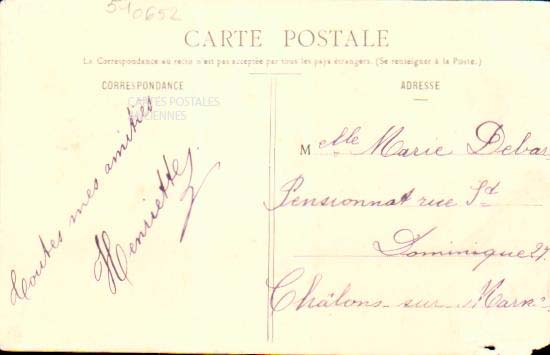 540652
CARTE POSTALE
La Correspondance au recto n'est pas acceptée par tous les pays étrangers. (Se renseigner à la Poste.)
CORRESPONDANCE
CARTES POSTALES
ANCIENNES
Toutes mes amitiés
Henriette
ADRESSE
Melle Marie Debar
Pensionnat rue St
Dominique 27
Châlons-sur-Marne